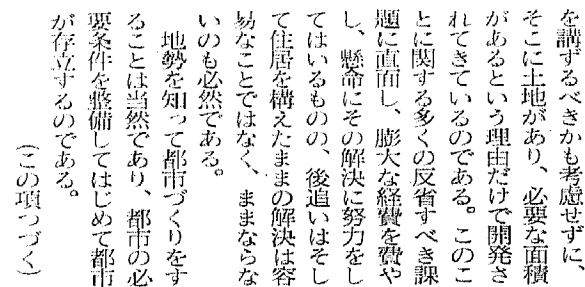 を講ずるべきかも考慮せずに、
そこに土地があり、必要な面積
があるという理由だけで開発さ
れてきているのである。このこ
とに関する多くの反省すべき課
題に直面し、膨大な経費を費や
し、懸命にその解決に努力をし
てはいるものの、後追いはそし
て住居を構えたままの解決は容
易なことではなく、ままならな
いのも必然である。
地勢を知って都市づくりをす
ることは当然であり、都市の必
要条件を整備してはじめて都市
が存立するのである。
(この項つづく)